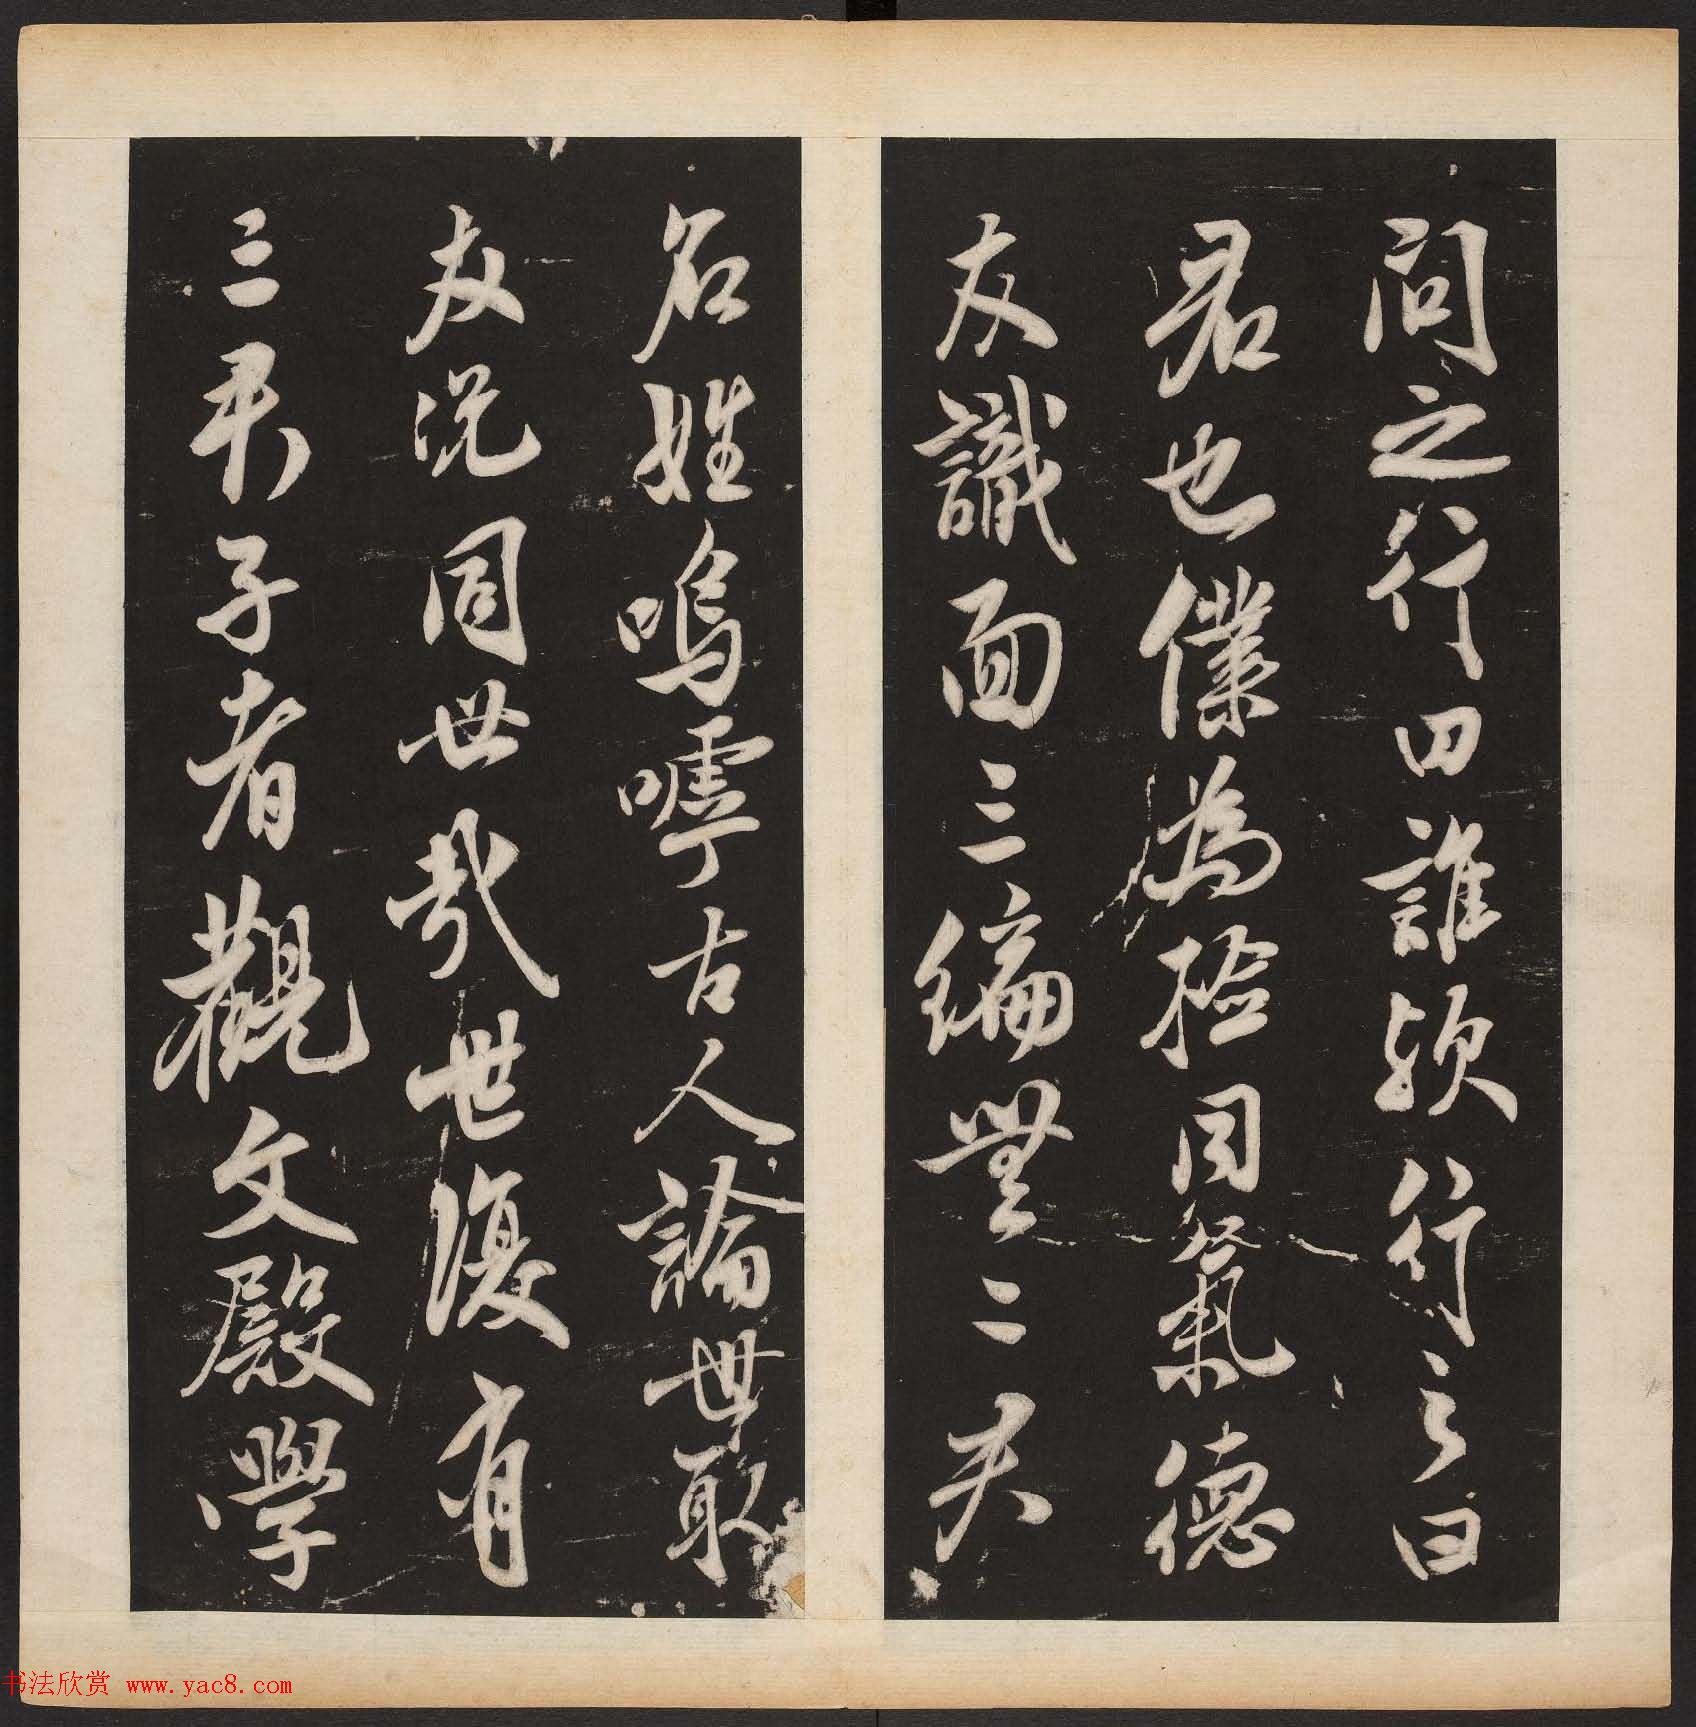 問之行曰誰欤行之曰
君也僕為同氣德
友識面三編無二夫
名姓嗚嘑古人論世取
友況同世哉世復有
三君子者觀文殿學
书法欣赏 www.yac8.com